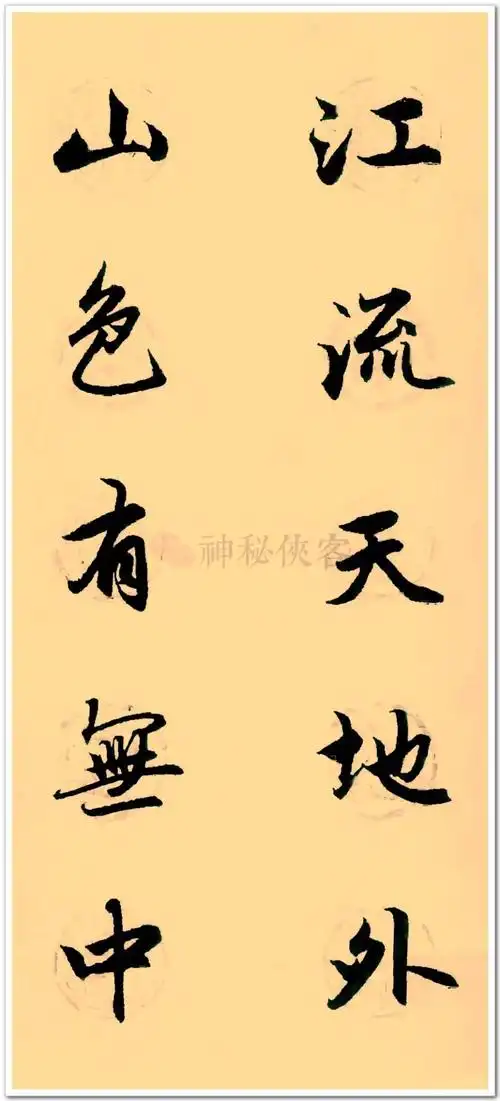 江流天地外
山色有無中
神秘俠客